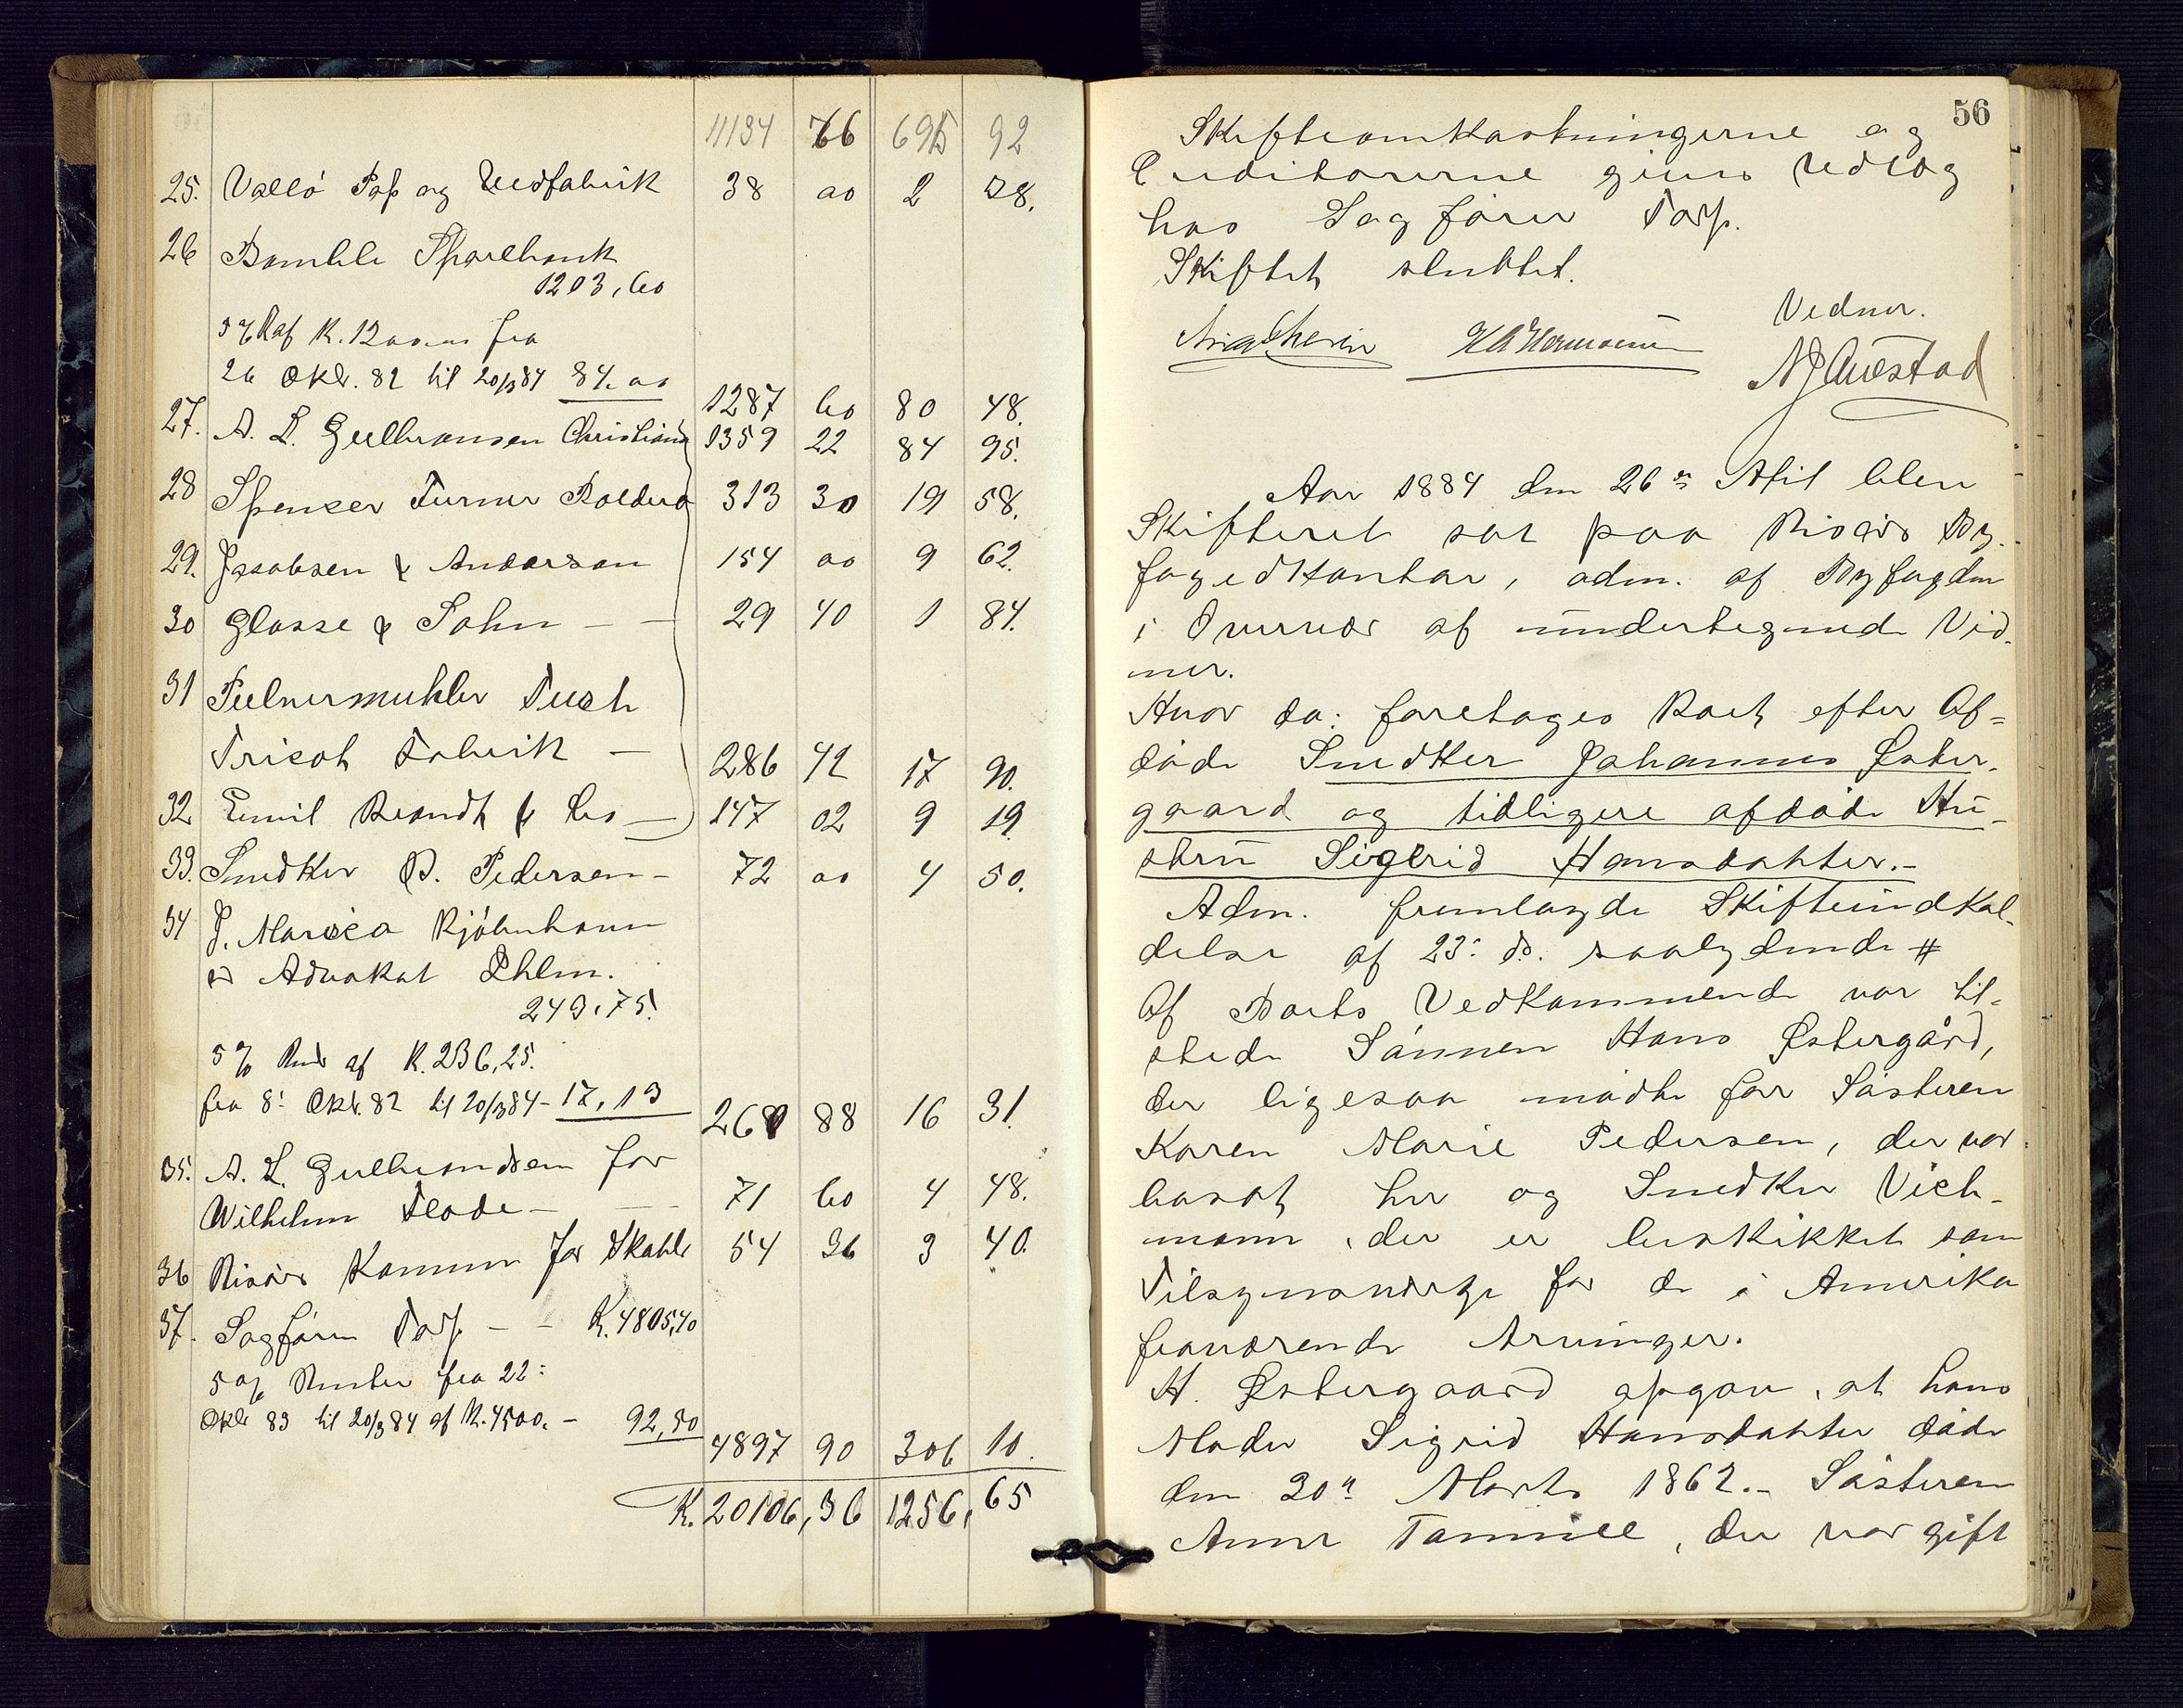 11134 66 695 92
25. Vallö Pap og Uldfabrik 38 00 2 38.
26 Bamble Sparebank
1203,60
5 % R af K. 1200.00 fra
26 Okt. 82 til 20/3 84 84.00
1287 60 80 48.
27. A. L. Gulbransen Christiania 1359 22 84 95.
28 Spencer Turner Boldero 313 30 19 58.
29. Jacobsen & Anderson 154 00 9 62.
30 Glasse & Sohn — — 29 40 1 84.
31 Pulnermuhler Tuch
Tricot Fabrik — 286 42 17 90.
32 Emil Brandt & Co — 147 02 9 19.
33. Snedker B. Pedersen — 72 00 4 50.
34 J. Kjöbenhavn
Advokat
249,75.
5 % Rent af K. 236,25.
fra 8: Okt. 82 til 20/3 84 - 17,13
260 88 16 31.
35. A. L. Gulbrandsen for
Wilhelm Flade — — 71 60 4 48.
36 Risörs Kommune for Skatte 54 36 3 40.
37. Sagförer Torp — — K. 4805,40
5 % Renter fra 22:
Okt 83 til 20/3 84 af K. 4500. — 92,50
4897 90 306 10.
K. 20106,36 1256,65
56
Skifteomkostningerne og
Creditorerne gives Udlæg
hos Sagförer Torp.
Skiftet sluttet.
Vidner.
N J Auestad
Aar 1884 den 26de April blev
Skifteret sat paa Risörs By-
fogedkontor, adm. af Byfogden
i Overvær af undertegnede Vid-
ner.
Hvor da: foretoges Boet efter Af-
döde Snedker Johannes Öster-
gaard og tidligere afdöde Hu-
stru Sigbrid Hansdatter. –
Adm. fremlagde Skifteindkal-
delse af 23: ds. saalydende #
Af Boets Vedkommende var til-
stede Sönnen Hans Östergård,
der ligesaa mödte for Sösteren
Karen Marie Pedersen, der var
bosat her og Snedker Vich-
mann, der er beskikket som
Tilsynsværge for de i Amerika
fraværende Arvinger.
H. Östergaard opgav, at hans
Moder Sigrid Hansdatter döde
den 30te Marts 1862. – Sösteren
Anne Tomine, der var gift